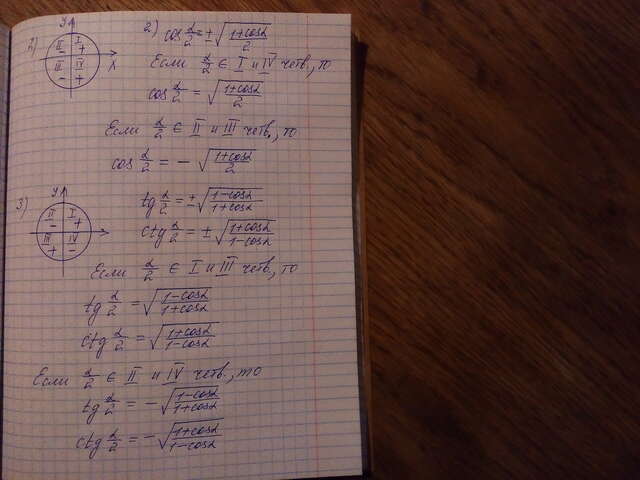 2) y I II + - III IV - + x
2) cos α/2 = ± √((1+cosα)/2)
Если α/2 ∈ I и IV четв., то
cos α/2 = √((1+cosα)/2)
Если α/2 ∈ II и III четв., то
cos α/2 = - √((1+cosα)/2)
3) y II I - + III IV + -
tg α/2 = ± √((1-cosα)/(1+cosα))
ctg α/2 = ± √((1+cosα)/(1-cosα))
Если α/2 ∈ I и III четв., то
tg α/2 = √((1-cosα)/(1+cosα))
ctg α/2 = √((1+cosα)/(1-cosα))
Если α/2 ∈ II и IV четв., то
tg α/2 = - √((1-cosα)/(1+cosα))
ctg α/2 = - √((1+cosα)/(1-cosα))